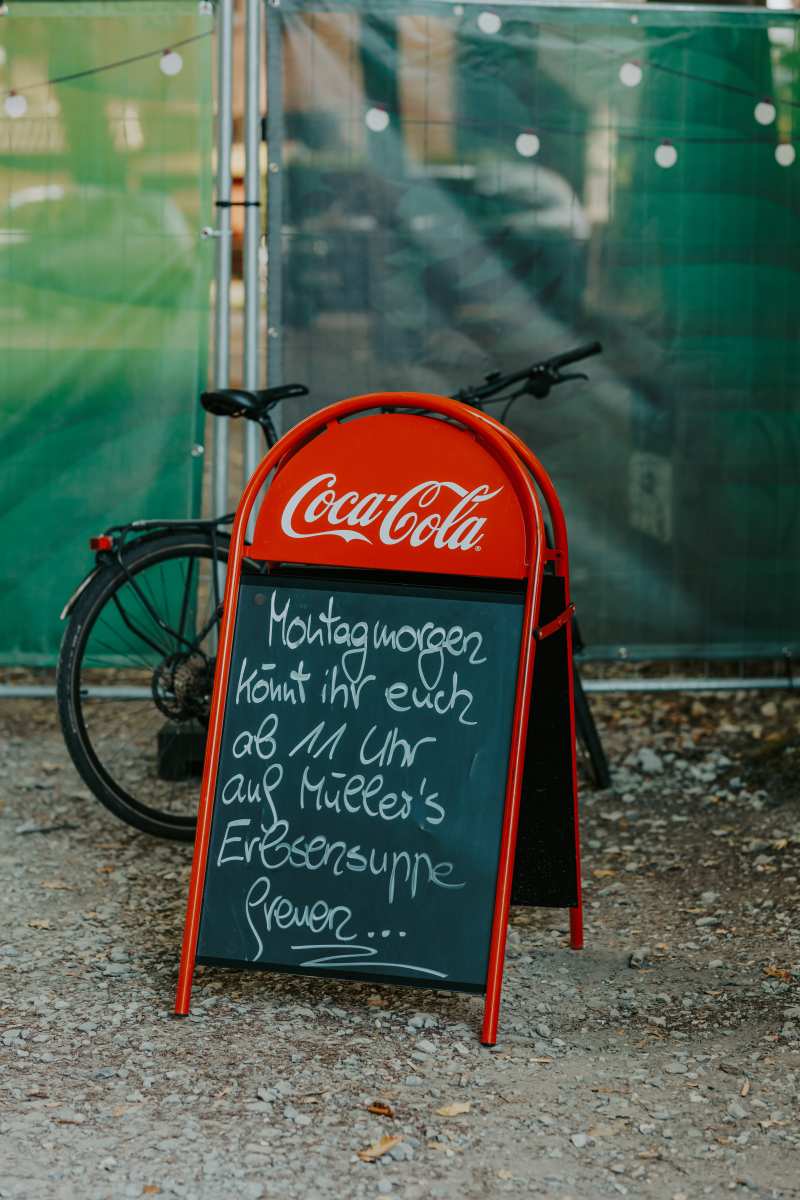 Coca-Cola
Montagmorgen
könnt ihr euch
ab 11 Uhr
auf Müller's
Erbsensuppe
freuen...